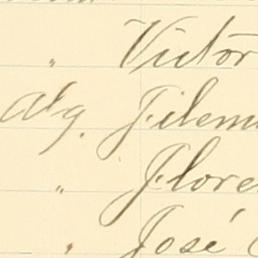 " Victor
Alg. Filem
" Flore
" José